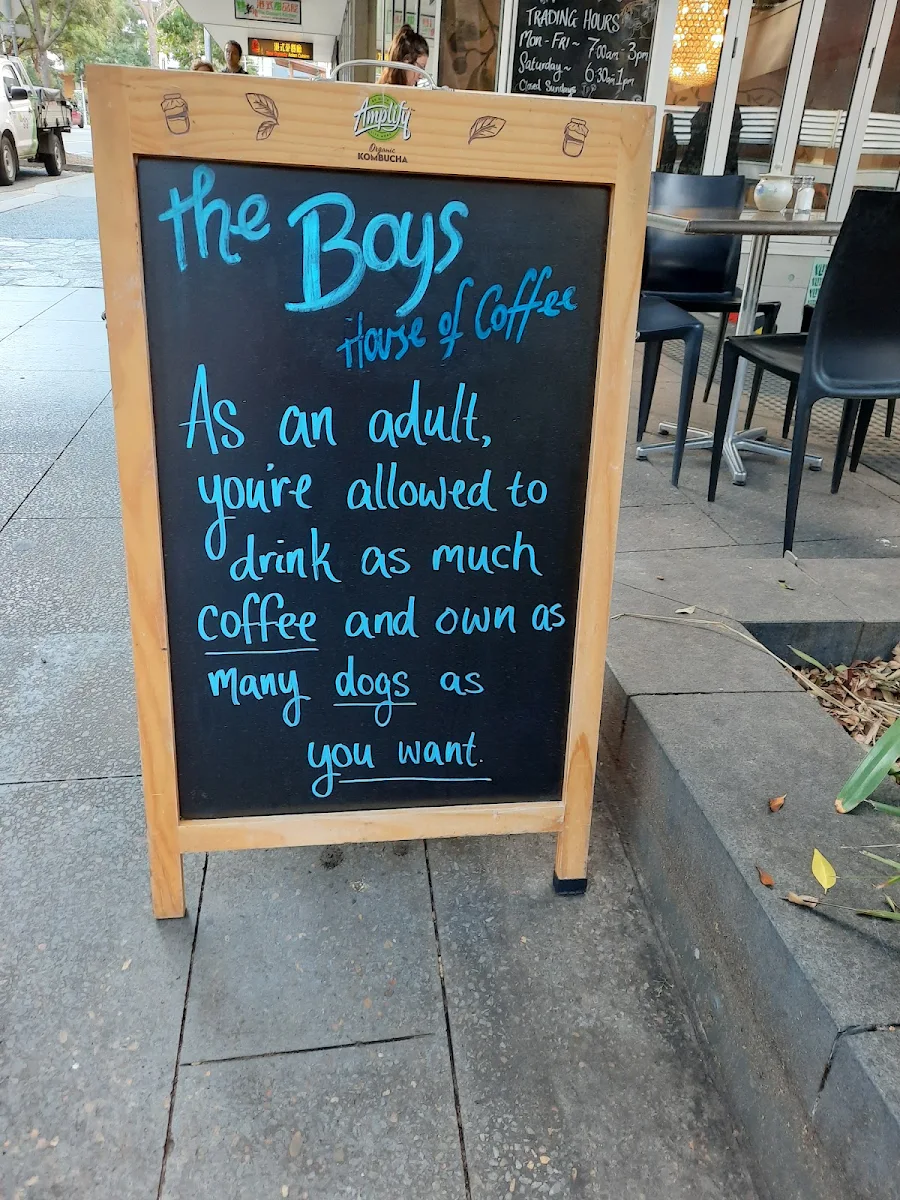 TRADING HOURS
Mon - Fri ~ 7:00am - 3pm
Saturday ~ 6:30am 1pm
Closed Sundays
Amplify
Organic
KOMBUCHA
the Boys
House of Coffee
As an adult,
you're allowed to
drink as much
coffee and own as
many dogs as
you want.